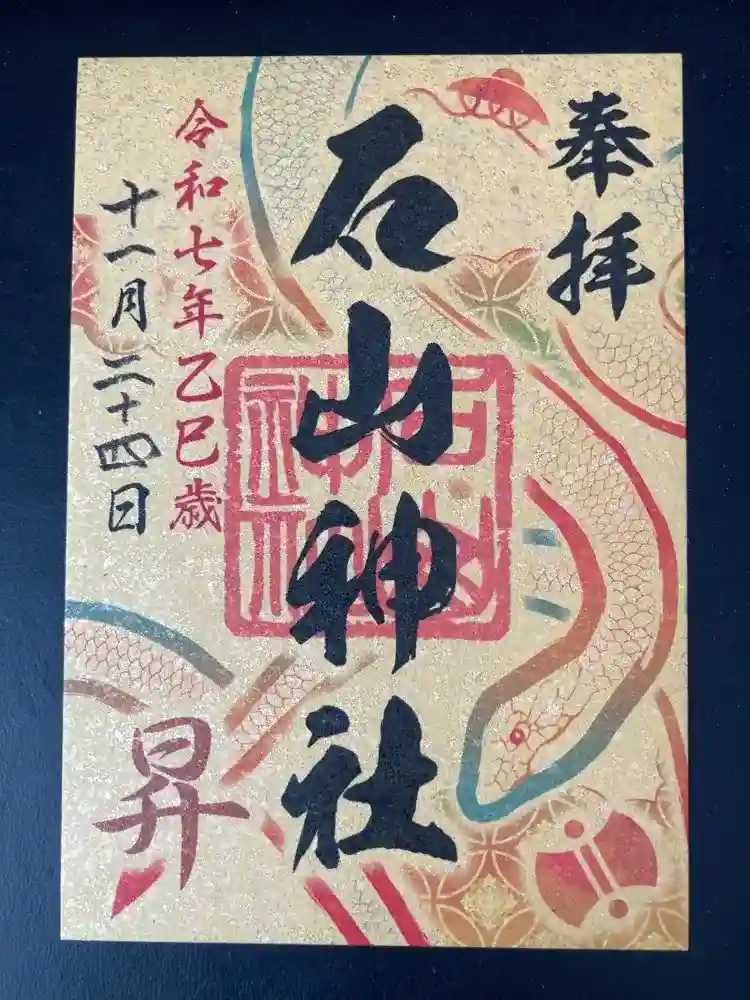 奉拝
石山神社
令和七年乙巳歳
十一月二十四日
昇